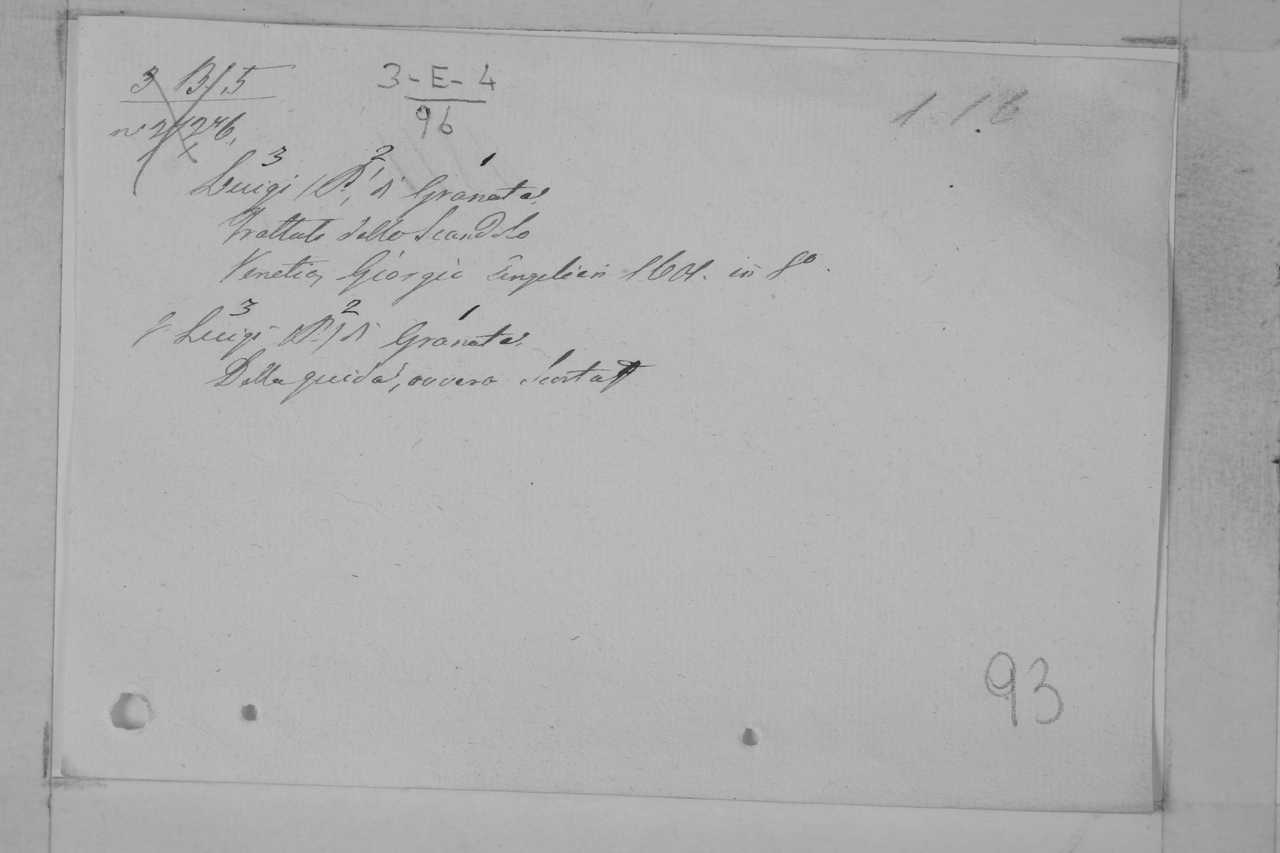 3 B/5
3-E-4
96
1.1.6
3 2 1
Luigi (P.) di Granata
Trattato dello Scandolo
Venetia, Giorgio Angelieri 1601. in 8º.
3 2 1
Luigi (P.) di Granata
Della guida, ovvero Scorta
93